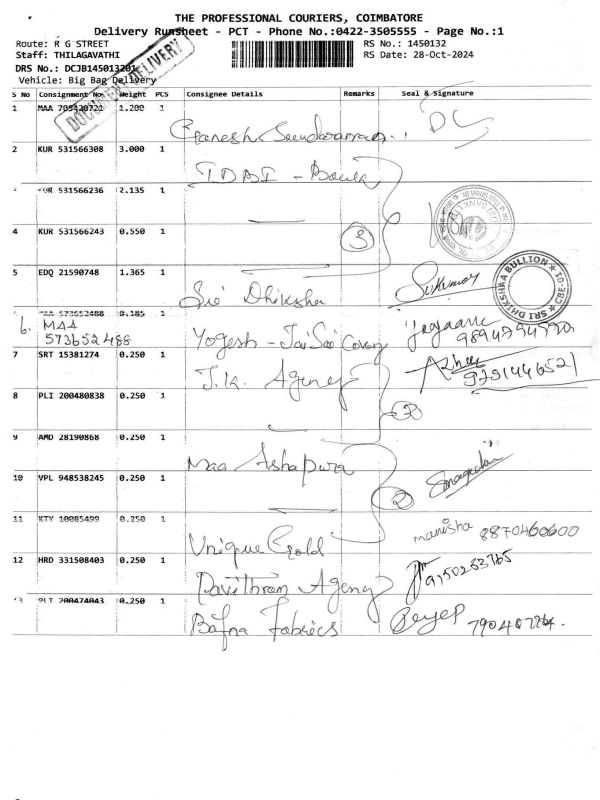 THE PROFESSIONAL COURIERS, COIMBATORE
Delivery Runsheet - PCT - Phone No.:0422-3505555 - Page No.:1
Route: R G STREET RS No.: 1450132
Staff: THILAGAVATHI RS Date: 28-Oct-2024
DRS No.: DCJB145013201
Vehicle: Big Bag Delivery
DOCUMENT DELIVERY
S No Consignment No Weight PCS Consignee Details Remarks Seal & Signature
1 MAA 1.200 1 Ganesh
2 KUR 531566308 3.000 1 IDBI - Bank
KUR 531566236 2.135 1
4 KUR 531566243 0.550 1 3
5 EDQ 21590748 1.365 1 Sri Dhiksha Sukumar
SRI DHIKSHAA BULLION CBE-01
MAA 573652488 0.185 1
6. MAA
573652488 Yogesh - Jai Sri
7 SRT 15381274 0.250 1 J.K. Agency 9791446521
8 PLI 200480838 0.250 1 2
9 AMD 28190868 0.250 1 Maa Ashapura
10 VPL 948538245 0.250 1 2
11 KTY 10085499 0.250 1 Unique Gold manisha 8870460600
12 HRD 331508403 0.250 1 Pavithram Agency
13 PLI 200474043 0.250 1 Bafna Fabrics